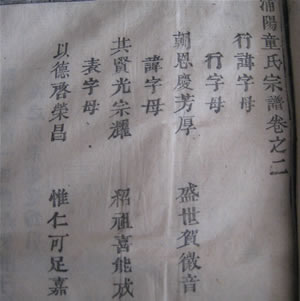 浦陽童氏宗譜卷之二
行諱字母
行字母
朝恩慶芳厚　盛世賀徽音
諱字母
共賢光宗耀　紹祖喜能成
表字母
以德啓榮昌　惟仁可足嘉